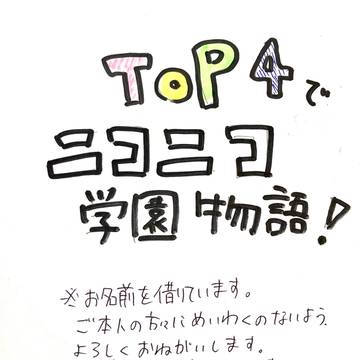 TOP4で
ニコニコ
学園物語!
※お名前を借りています。
ご本人の方々にめいわくのないよう
よろしくおねがいします。